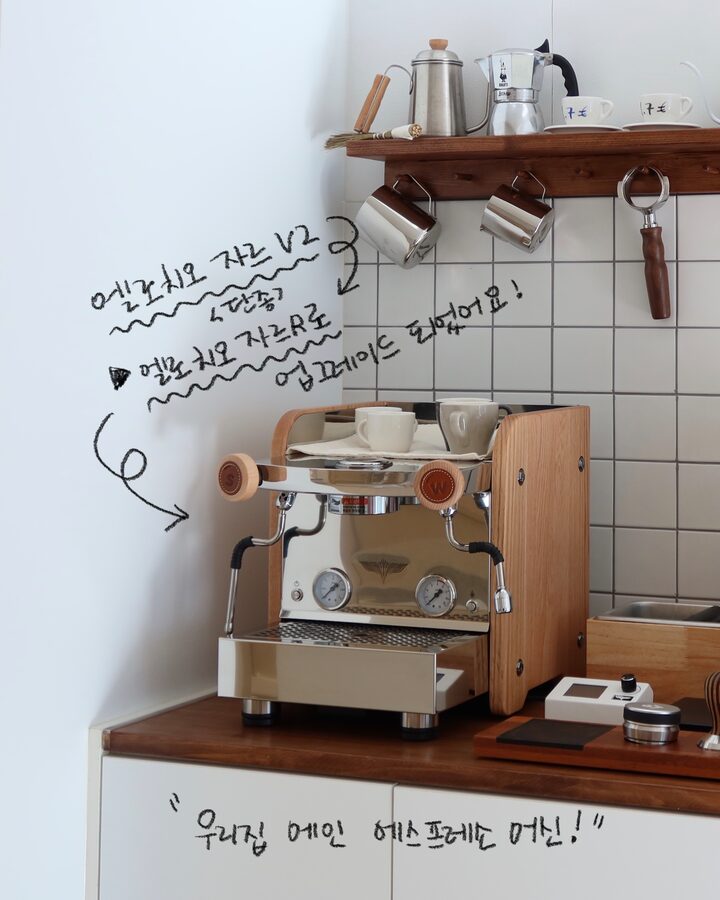 엘로치오 자르 V2
단종
▶ 엘로치오 자르R로
업그레이드 되었어요!
"우리집 메인 에스프레소 머신!"
S
W